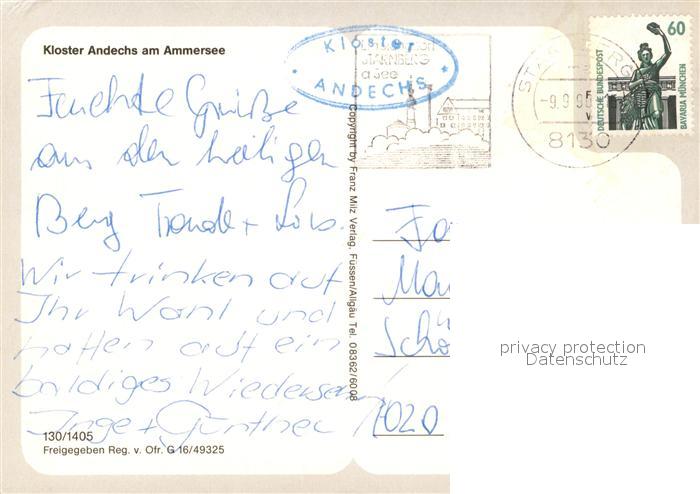 Kloster Andechs am Ammersee
Kloster
ANDECHS
STARNBERG
a See
STARNBERG
-9.9.90
8130
60
DEUTSCHE BUNDESPOST
BAVARIA MÜNCHEN
Feuchte Grüße
aus den heiligen
Berg Traudl + Lois.
Wir trinken auf
Ihr Wohl und
hoffen auf ein
baldiges Wiedersehen
Inge + Günther
Copyright by Franz Milz Verlag, Füssen/Allgäu Tel. 08362/6008
Schö
privacy protection
Datenschutz
130/1405
Freigegeben Reg. v. Ofr. G 16/49325